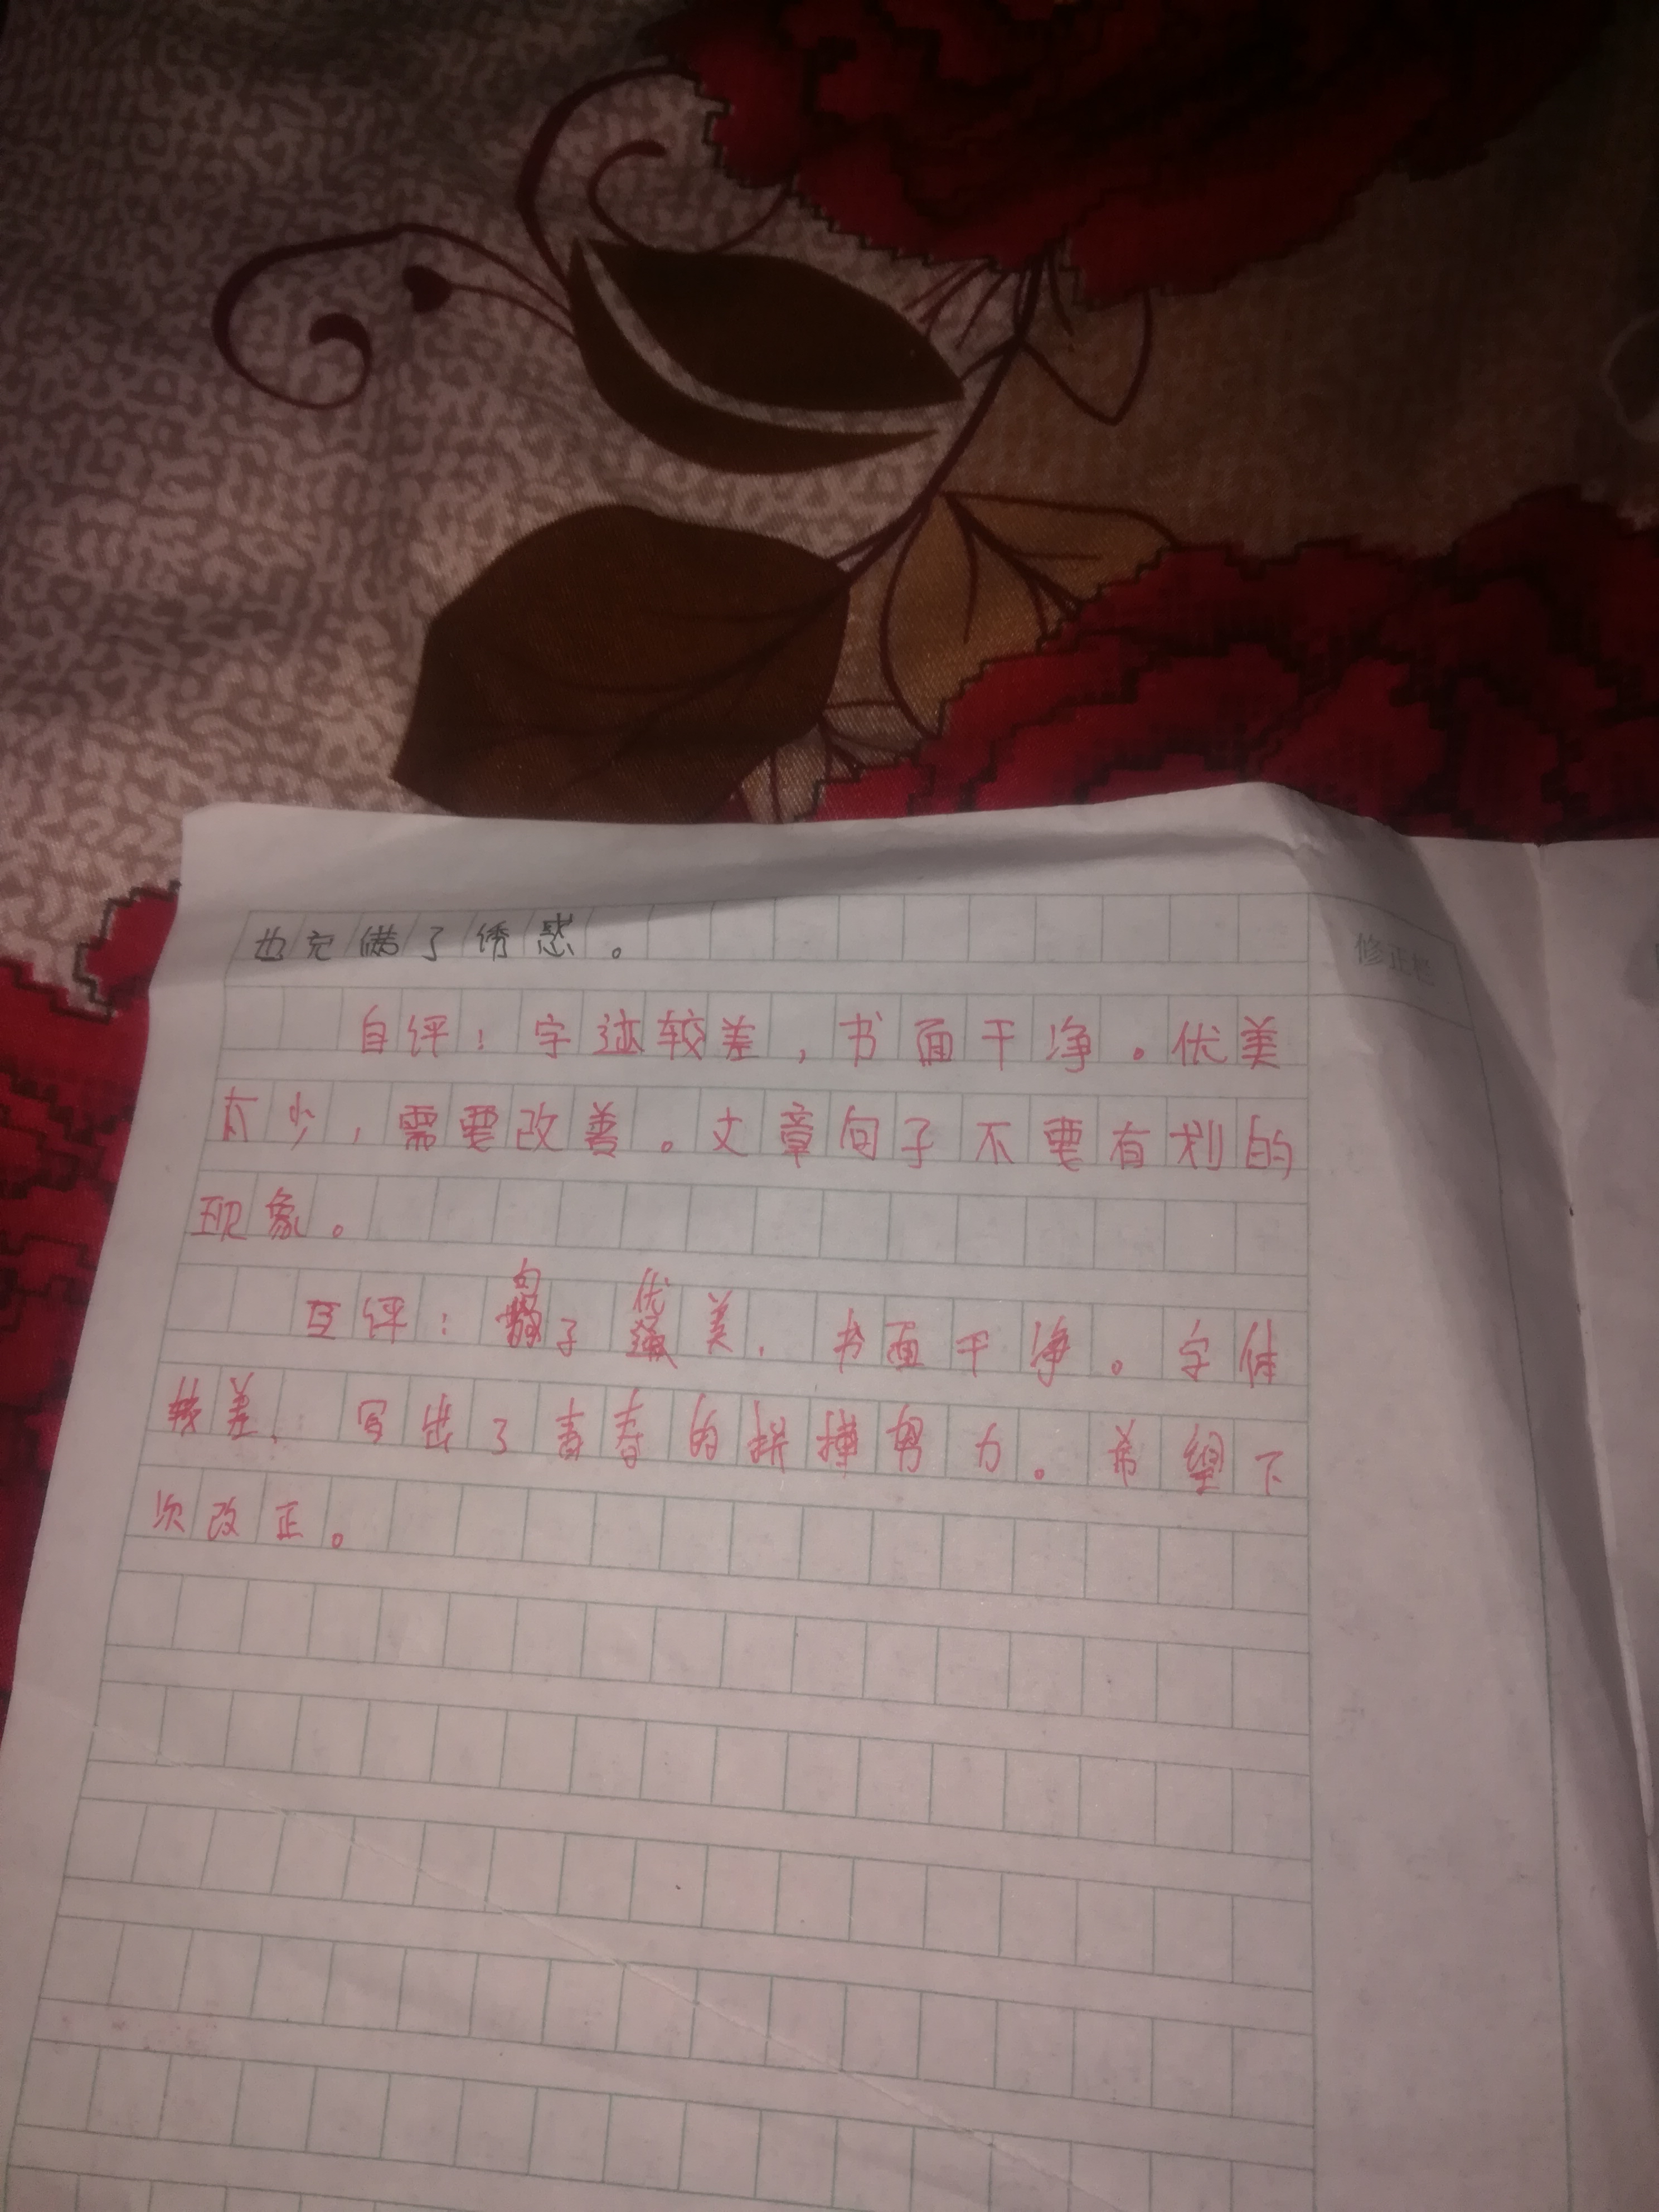 也充满了诱惑。
修正栏
自评：字迹较差，书面干净。优美
有少，需要改善。文章句子不要有划的
现象。
互评：句子优美，书面干净。字体
较差，写出了青春的拼搏努力。希望下
次改正。